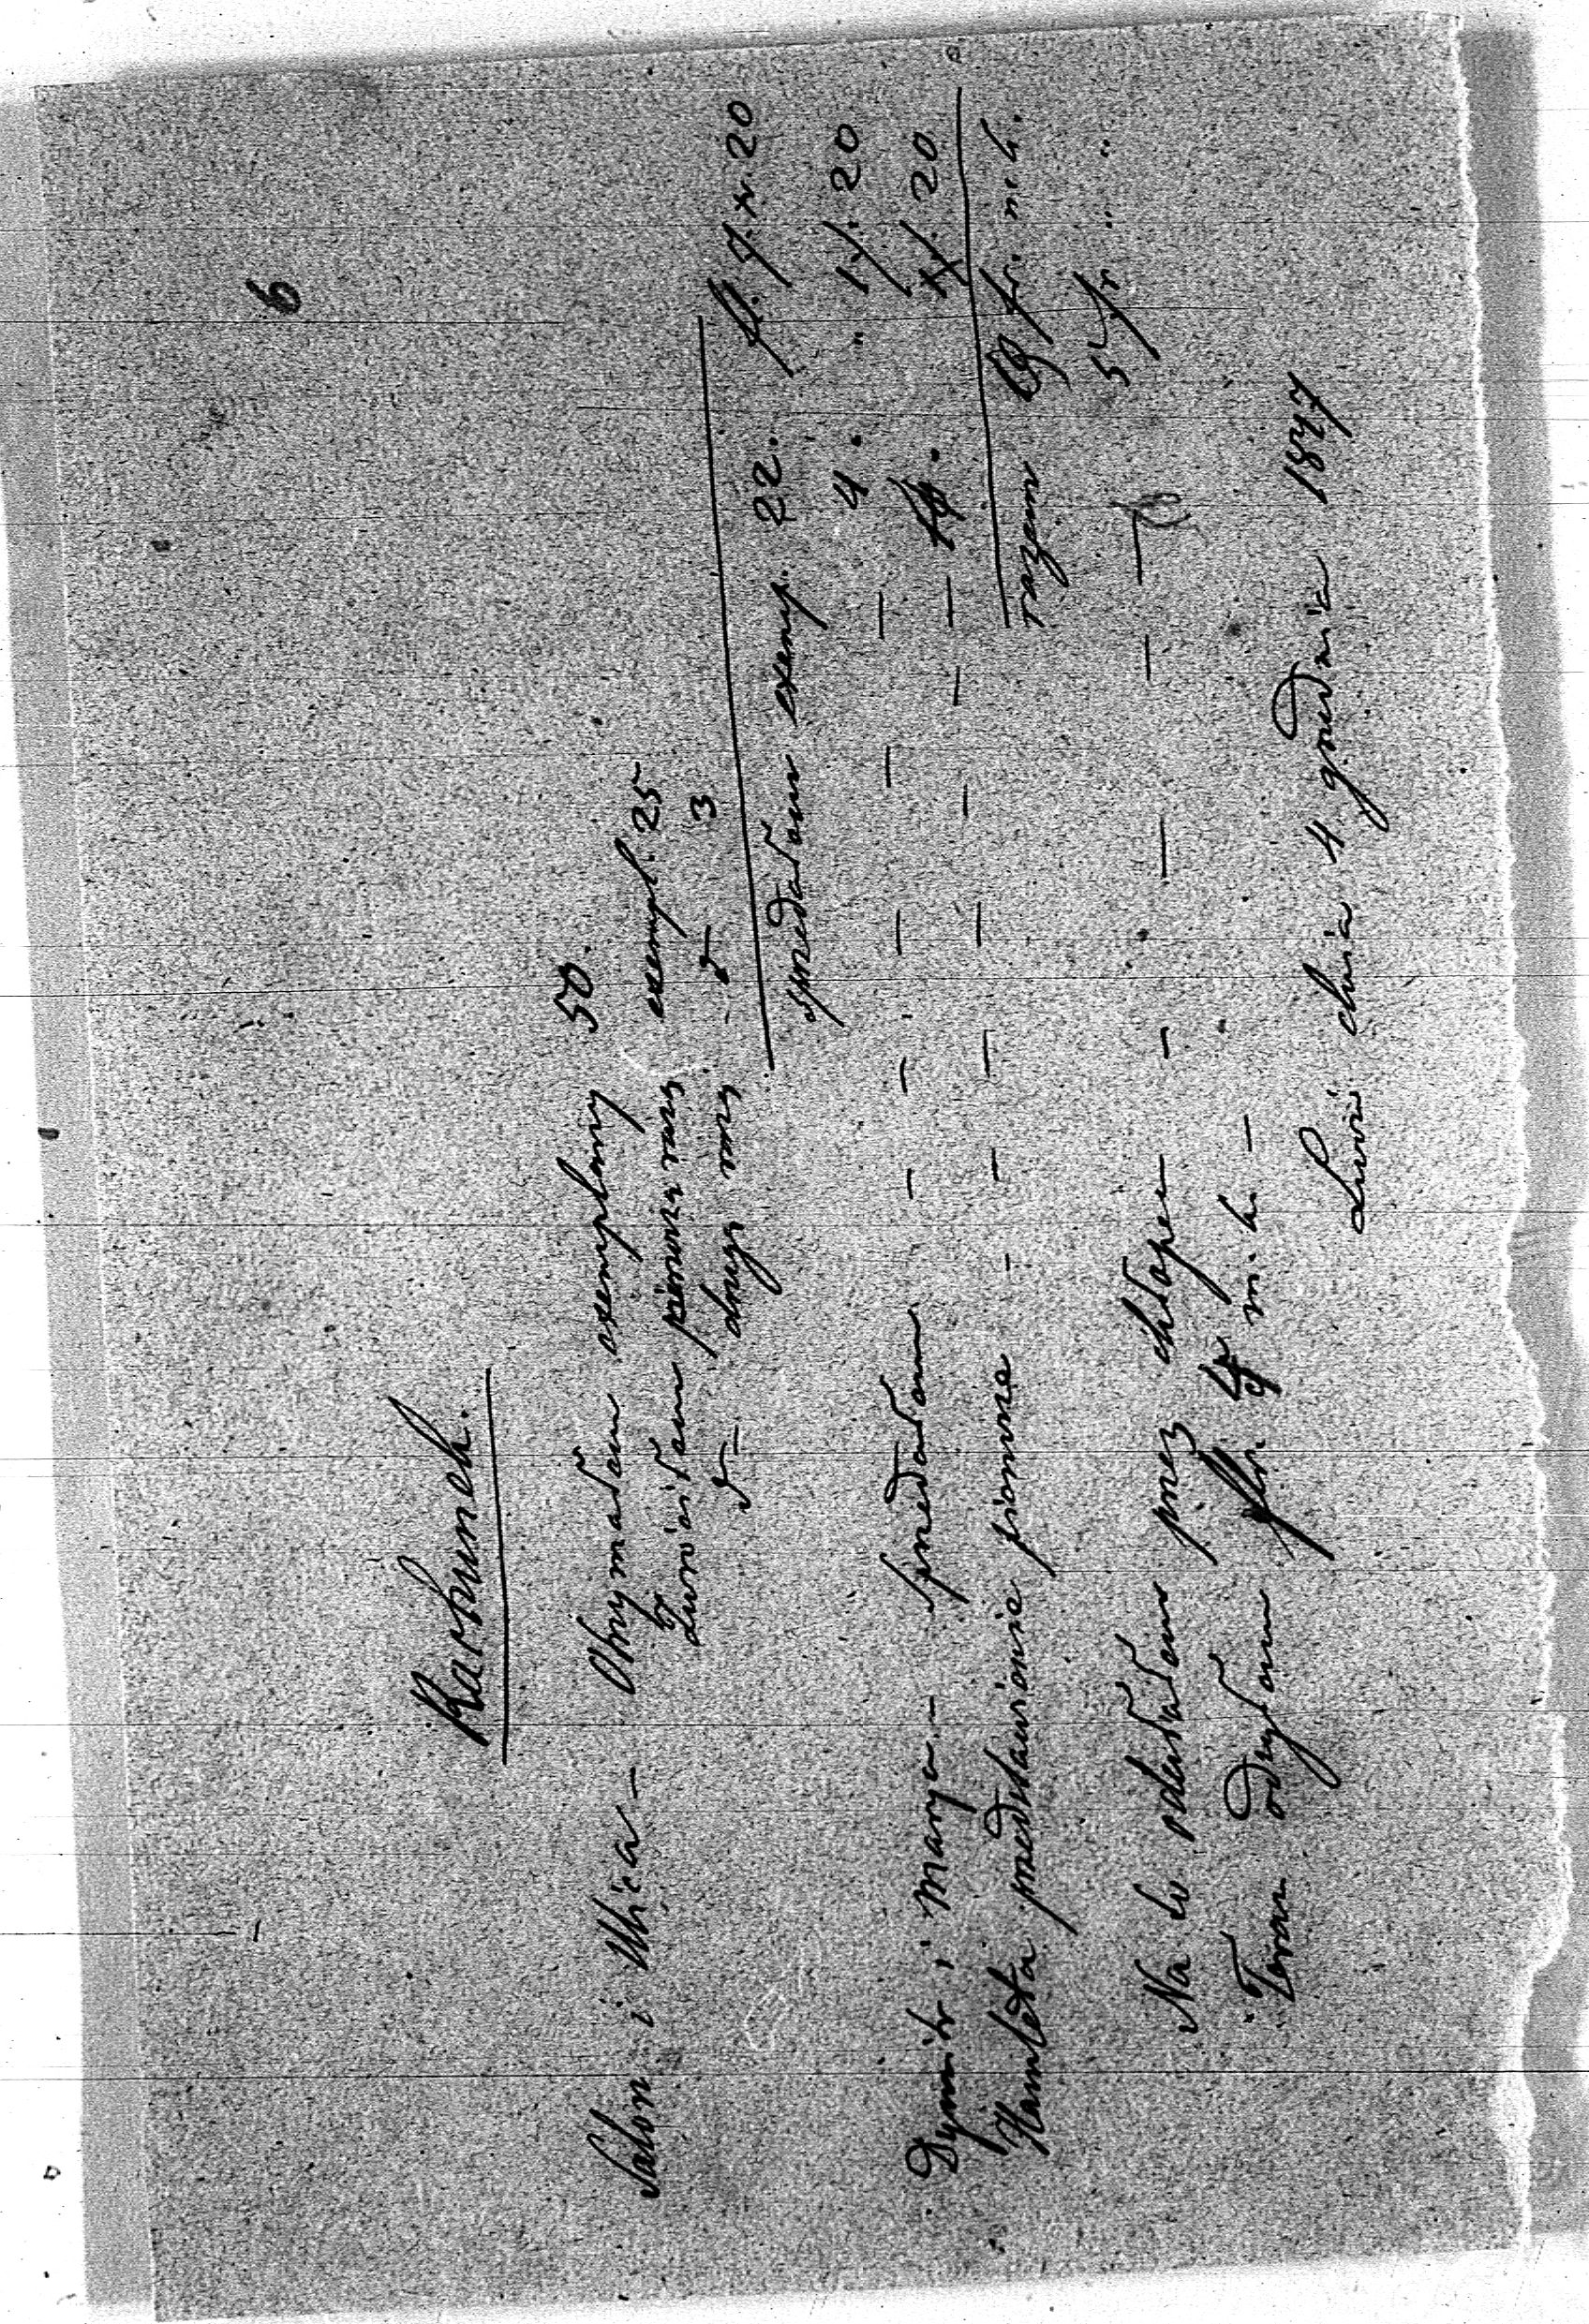 6
Rachunek.
Salon i Ulica – Otrzymałem exemplarzy 50.
Zwróciłem pierwszą razą exempl. 25
d– drugą razą – d– 3
sprzedałem exemp. 22. fl. 7. xr. 20
Dymitr i Marya – sprzedałem – – – – – – 4. " 1/. 20
Hamleta przedstawienie pierwsze – – – – – – – 20
razem fr. m. k.
Na to odesłałem przez chłopca – – – – 5 fr " "
Teraz odsyłam flr. 4 m. k. –
Lwów dnia 4 grudnia 1847